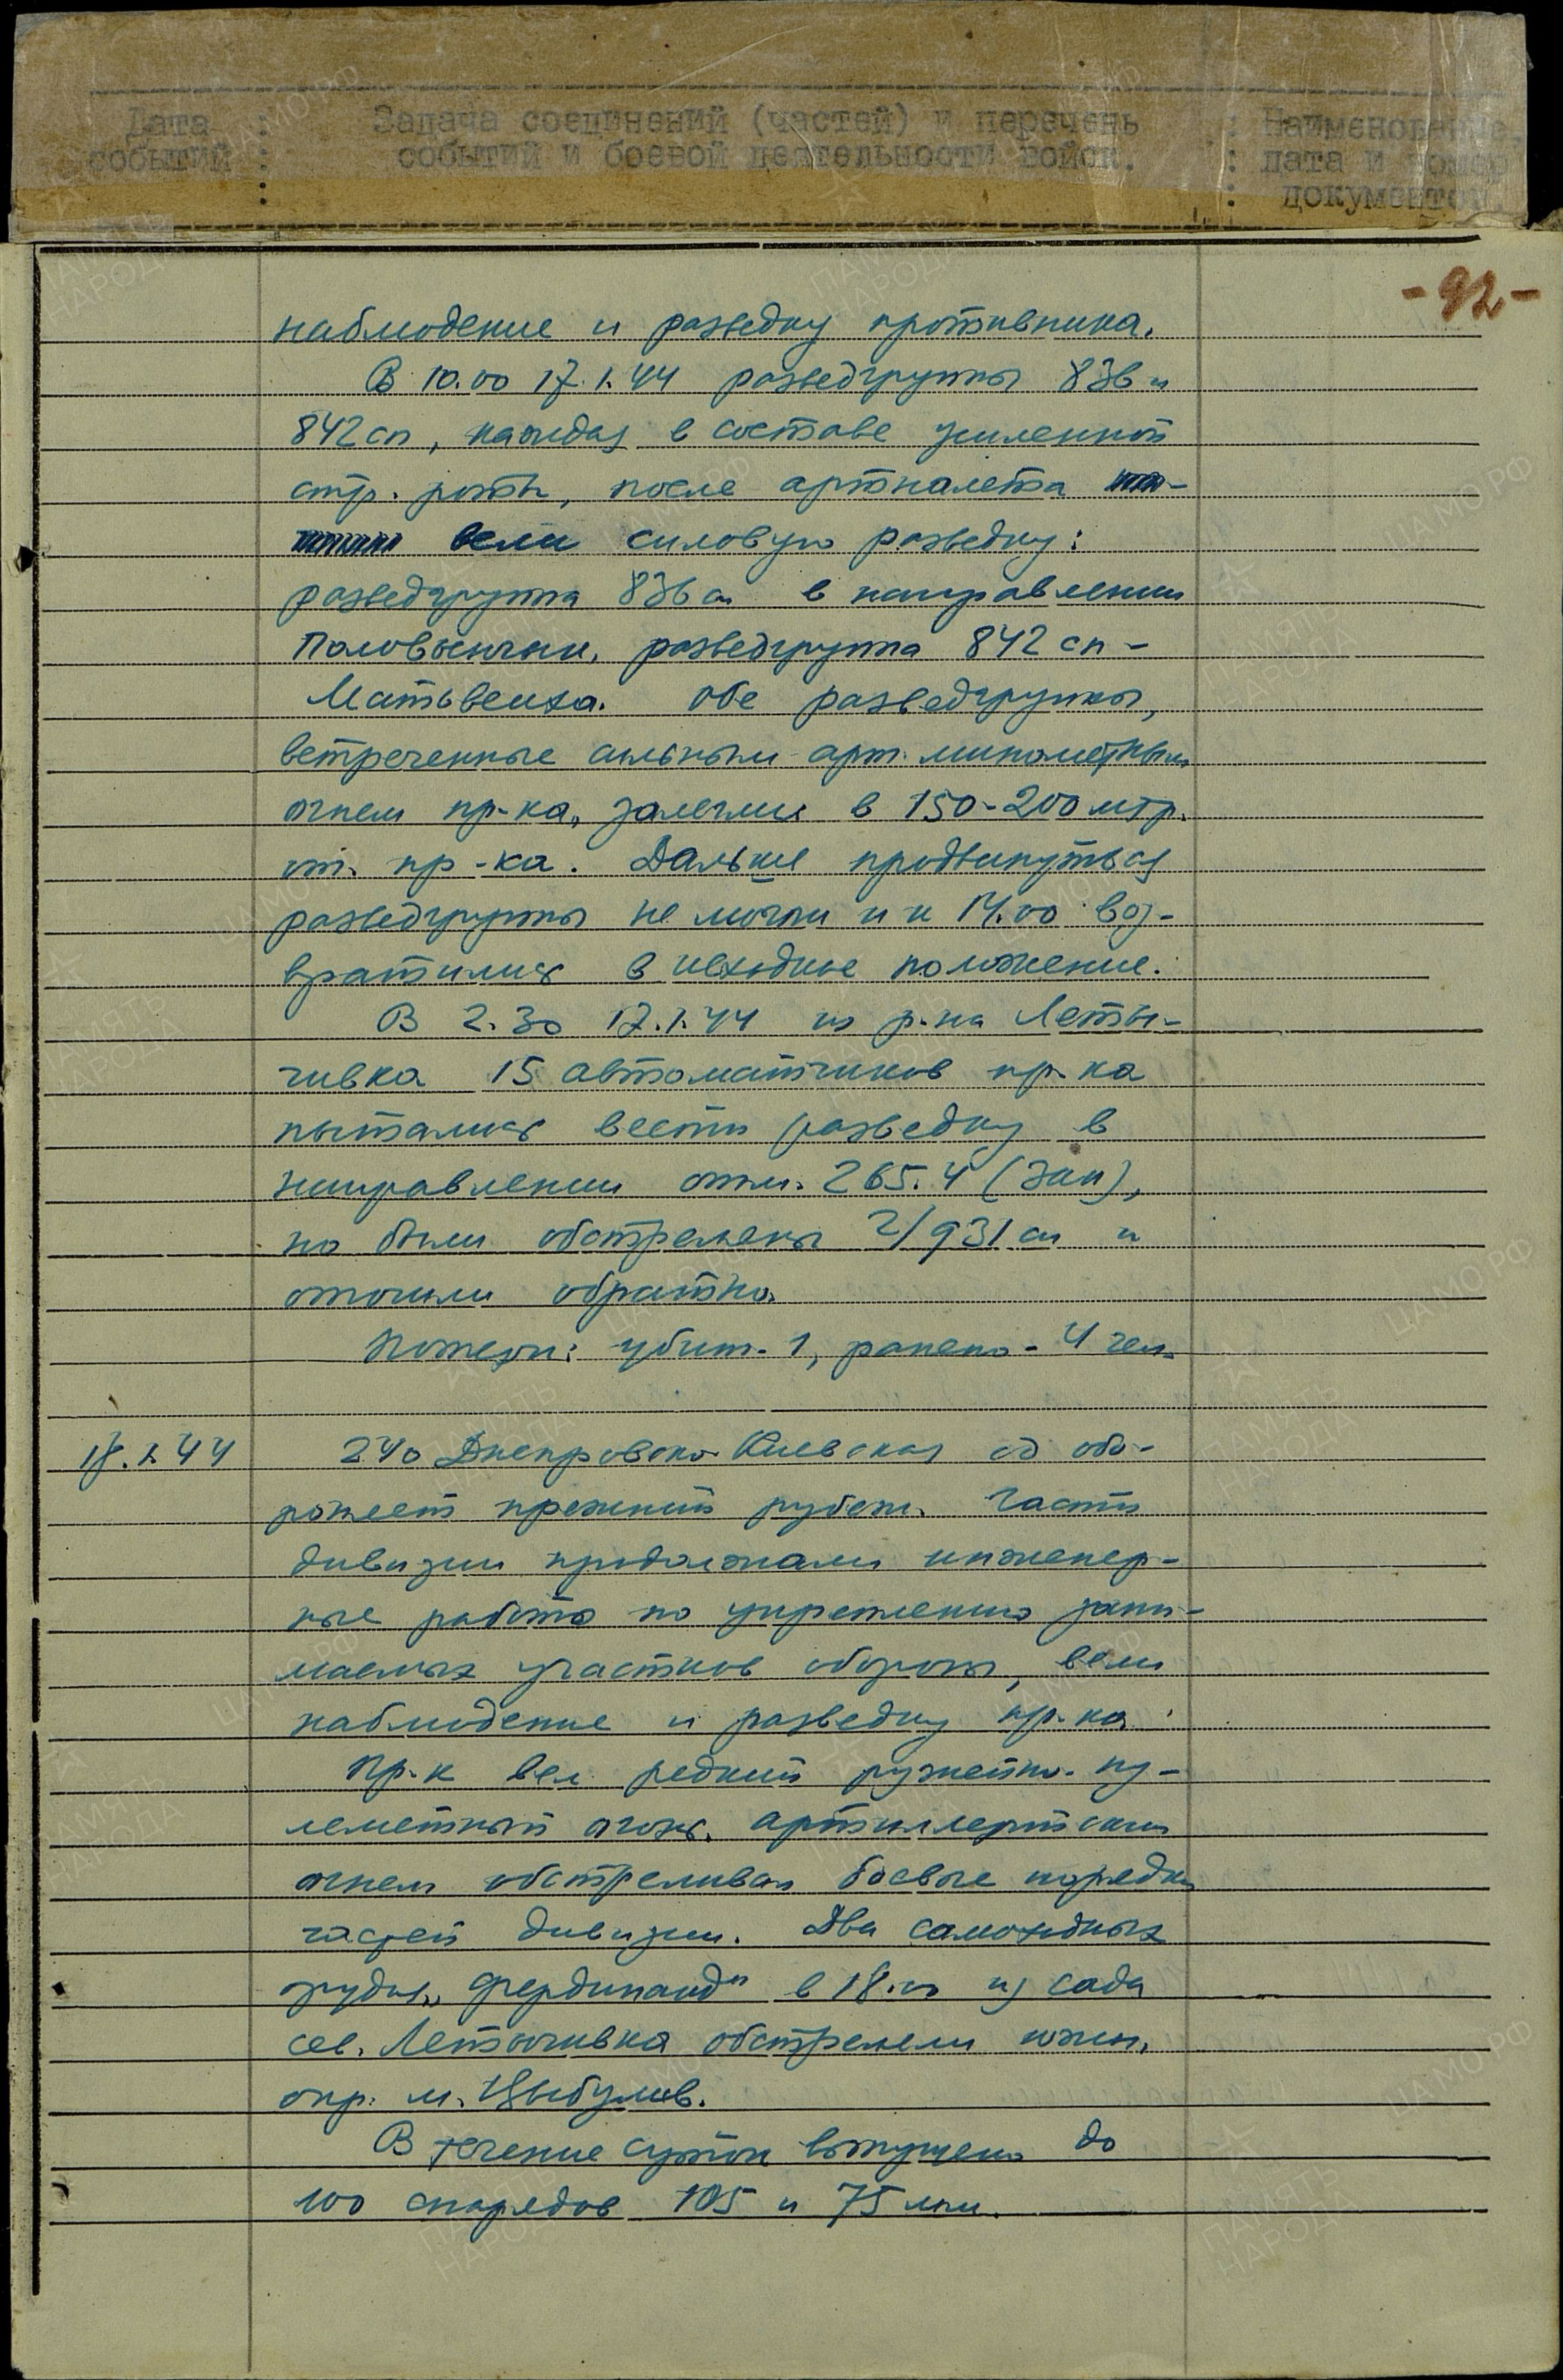 Дата событий : Задача соединений (частей) и перечень событий и боевой деятельности войск. : Наименование, дата и номер документов.
-92-
наблюдение и разведку противника.
В 10.00 17.1.44 разведгруппы 836 и
842 сп, каждая в составе усиленной
стр. роты, после артналета
вели силовую разведку:
разведгруппа 836 сп в направлении
Половынчик, разведгруппа 842 сп -
Матвеиха. Обе разведгруппы,
встреченные сильным арт. минометным
огнем пр-ка, залегли в 150-200 мтр.
от пр-ка. Дальше продвинуться
разведгруппы не могли и к 14.00 воз-
вратились в исходное положение.
В 2.30 17.1.44 из р-на Леты-
чивка 15 автоматчиков пр-ка
пытались вести разведку в
направлении отм. 265.4 (зап),
но были обстреляны 2/931 сп и
отошли обратно.
Потери: убит - 1, ранено - 4 чел.
18.1.44 240 Днепровско-Киевская сд обо-
роняет прежний рубеж. Части
дивизии продолжали инженер-
ные работы по укреплению зани-
маемых участков обороны, вели
наблюдение и разведку пр-ка.
Пр-к вел редкий ружейно-пу-
леметный огонь. Артиллерийским
огнем обстреливал боевые порядки
частей дивизии. Два самоходных
орудия „Фердинанд" в 18.00 из сада
сев. Летычивка обстреляли южн.
окр. м. Цыбулев.
В течение суток выпущено до
100 снарядов 105 и 75 мм.